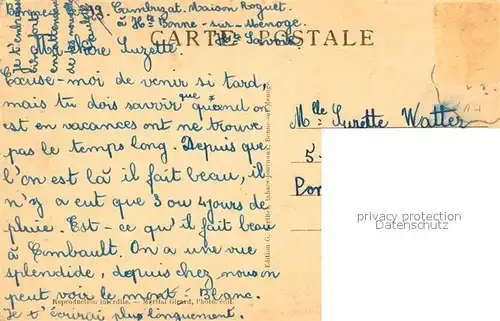 Cambuzat. Maison Roguet.
à Hte Bonne-sur-Menoge.
Hte Savoie
CARTE POSTALE
Ma Chère Suzette
Excuse-moi de venir si tard,
mais tu dois savoir que quand on
est en vacances ont ne trouve
pas le temps long. Depuis que
l'on est là il fait beau, il
n'y a eut que 3 ou 4 jours de
pluie. Est-ce qu'il fait beau
à Combault. On a une vue
splendide, depuis chez nous on
peut voir le mont-Blanc.
Je t'écrirai plus longuement.
Je t'embrasse
bien fort
en attendant
de tes nouvelles
Mlle Suzette Watter
5
privacy protection
Datenschutz
Reproduction interdite. — Martial Girard, Phot. édit.